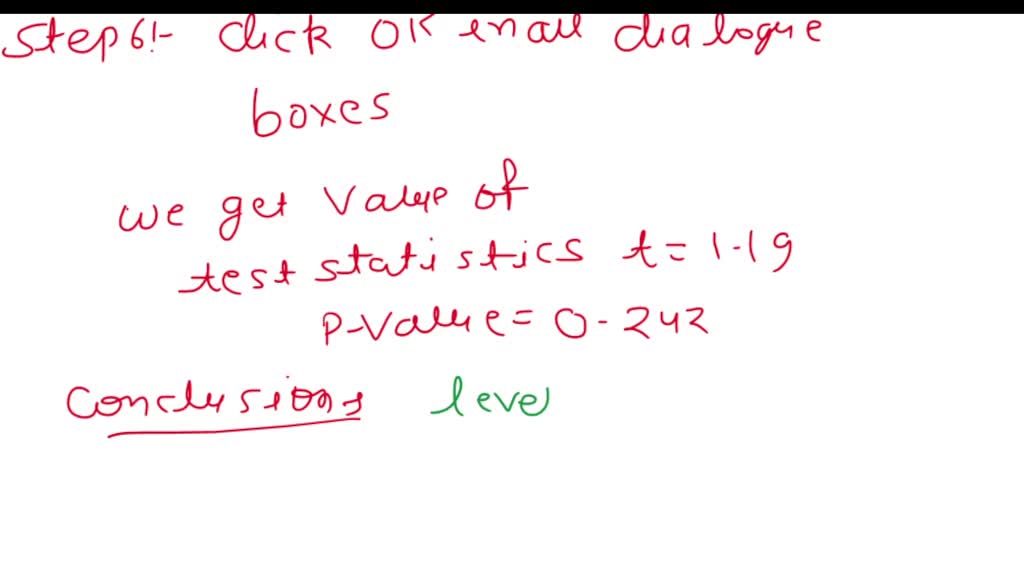 Step 6:- Click OK in all dialogue
boxes
we get value of
test statistics t = 1.19
P-value = 0.242
Conclusions level